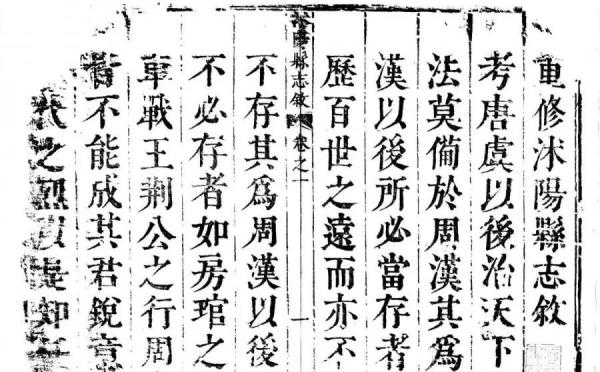 重修沭陽縣志敘
考唐虞以後治天下
法莫備於周漢其為
漢以後所必當存者
歷百世之遠而亦不
沭陽縣志敘 卷之一 一
不存其為周漢以後
不必存者如房琯之
車戰王荊公之行周
皆不能成其君銳意
代之烈以是知